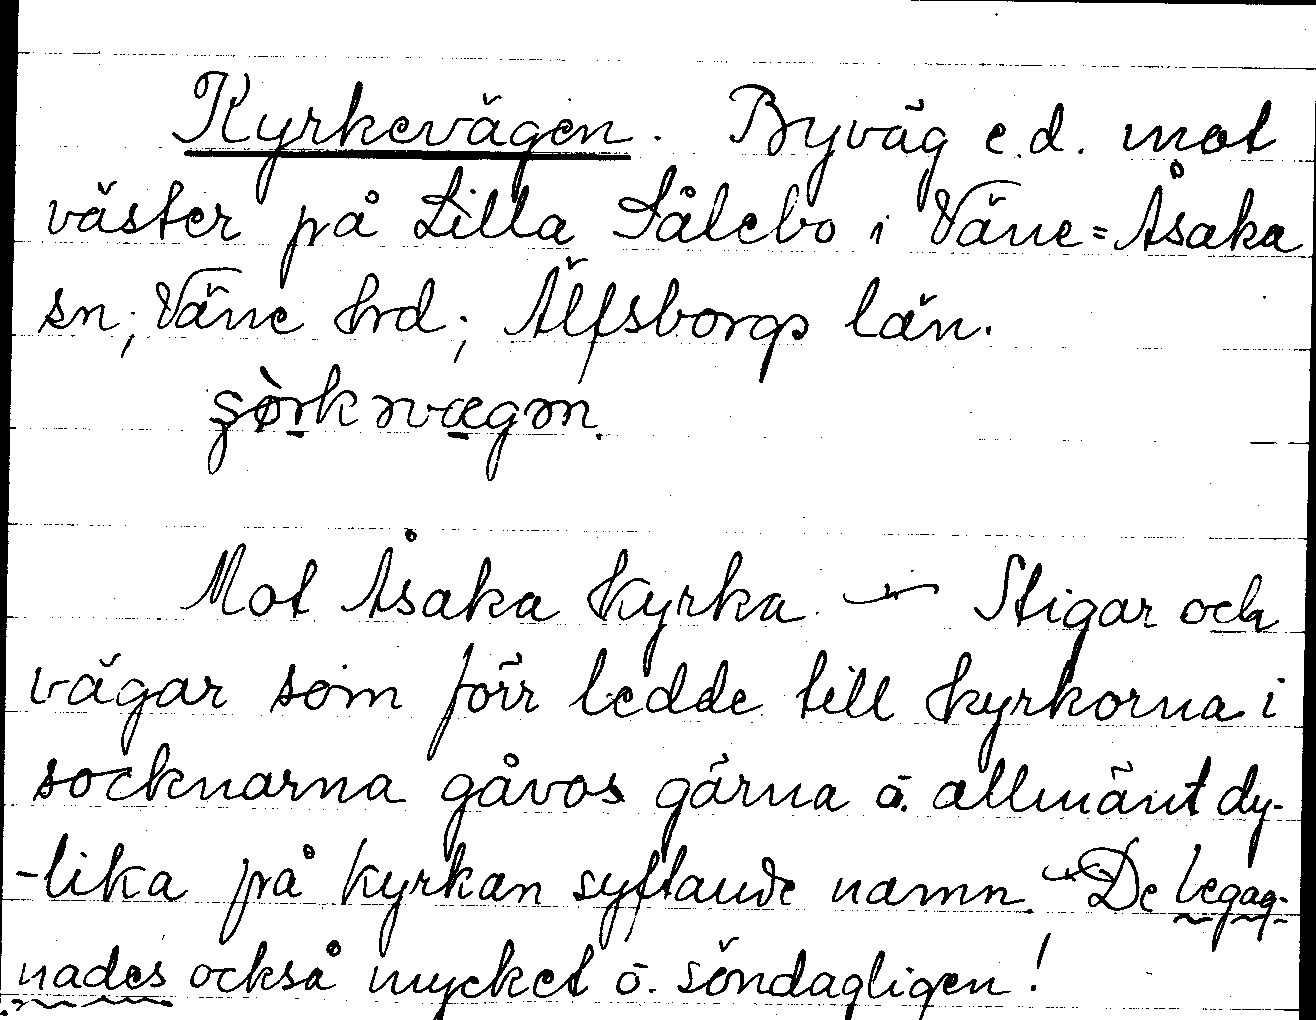 Kyrkevägen. Byväg e.d. mot
väster på Lilla Sålebo i Väne=Åsaka
sn; Väne hrd; Älfsborgs län.
Mot Åsaka kyrka. — Stigar och
vägar som förr ledde till kyrkorna i
socknarna gåvos gärna o. allmänt dy-
-lika på kyrkan syftande namn. - De begag-
nades också mycket o. söndagligen!